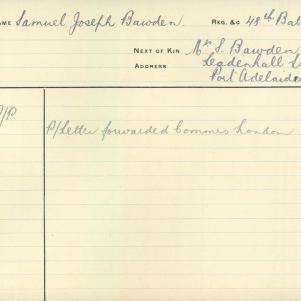 AME Samuel Joseph Bawden. REG. &C 48th Bat
NEXT OF KIN Mr S. Bawden,
ADDRESS Leadenhall S
Port Adelaide
/P.
P/Letter forwarded Commrs London